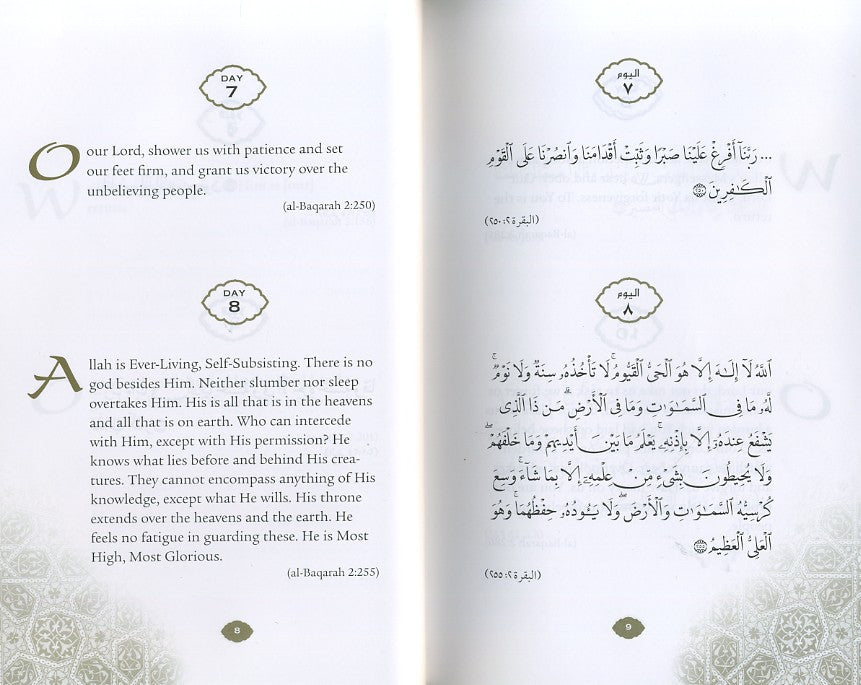 DAY
7
Oour Lord, shower us with patience and set
our feet firm, and grant us victory over the
unbelieving people.
(al-Baqarah 2:250)
DAY
8
Allah is Ever-Living, Self-Subsisting. There is no
god besides Him. Neither slumber nor sleep
overtakes Him. His is all that is in the heavens
and all that is on earth. Who can intercede
with Him, except with His permission? He
knows what lies before and behind His crea-
tures. They cannot encompass anything of His
knowledge, except what He wills. His throne
extends over the heavens and the earth. He
feels no fatigue in guarding these. He is Most
High, Most Glorious.
(al-Baqarah 2:255)
8
اليوم
٧
... رَبَّنَآ أَفْرِغْ عَلَيْنَا صَبْرًا وَثَبِّتْ أَقْدَامَنَا وَٱنصُرْنَا عَلَى ٱلْقَوْمِ
ٱلْكَٰفِرِينَ ۝٢٥٠
(البقرة ٢: ٢٥٠)
اليوم
٨
ٱللَّهُ لَآ إِلَٰهَ إِلَّا هُوَ ٱلْحَىُّ ٱلْقَيُّومُ ۚ لَا تَأْخُذُهُۥ سِنَةٌ وَلَا نَوْمٌ ۚ
لَّهُۥ مَا فِى ٱلسَّمَٰوَٰتِ وَمَا فِى ٱلْأَرْضِ ۗ مَن ذَا ٱلَّذِى
يَشْفَعُ عِندَهُۥٓ إِلَّا بِإِذْنِهِۦ ۚ يَعْلَمُ مَا بَيْنَ أَيْدِيهِمْ وَمَا خَلْفَهُمْ ۖ
وَلَا يُحِيطُونَ بِشَىْءٍ مِّنْ عِلْمِهِۦٓ إِلَّا بِمَا شَآءَ ۚ وَسِعَ
كُرْسِيُّهُ ٱلسَّمَٰوَٰتِ وَٱلْأَرْضَ ۖ وَلَا يَـُٔودُهُۥ حِفْظُهُمَا ۚ وَهُوَ
ٱلْعَلِىُّ ٱلْعَظِيمُ ۝٢٥٥
(البقرة ٢: ٢٥٥)
9